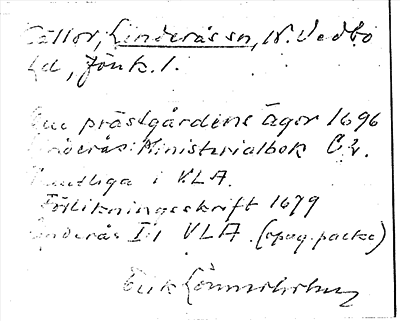 Källor, Linderås sn, N. Vedbo
hd, Jönk. l.
prästgårdens ägor 1696
Linderås: Ministerialbok C:2.
Samtliga i VLA.
Förlikningsskrift 1679
Linderås I:1 VLA. (opag. packe)
Erik